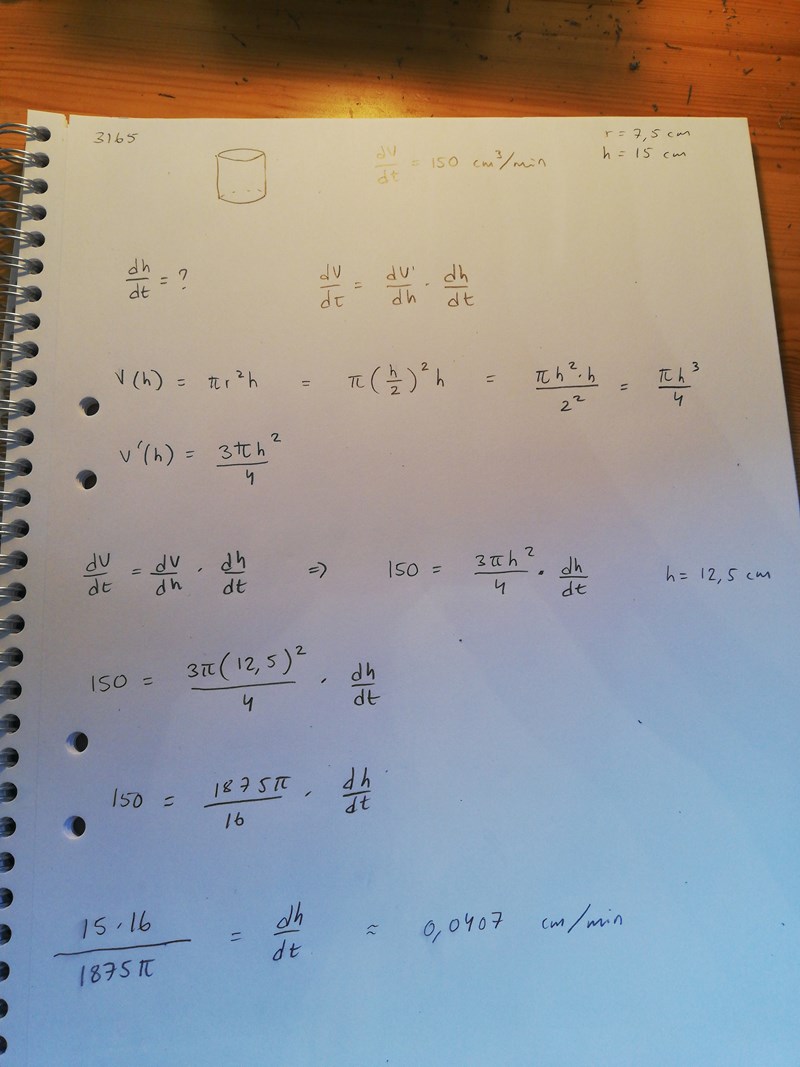 3165
dV/dt = 150 cm³/min
r = 7,5 cm
h = 15 cm
dh/dt = ?
dV/dt = dV'/dh · dh/dt
V(h) = πr²h = π(h/2)²h = πh²·h/2² = πh³/4
V'(h) = 3πh²/4
dV/dt = dV/dh · dh/dt ⇒ 150 = 3πh²/4 · dh/dt h = 12,5 cm
150 = 3π(12,5)²/4 · dh/dt
150 = 1875π/16 · dh/dt
15·16/1875π = dh/dt ≈ 0,0407 cm/min